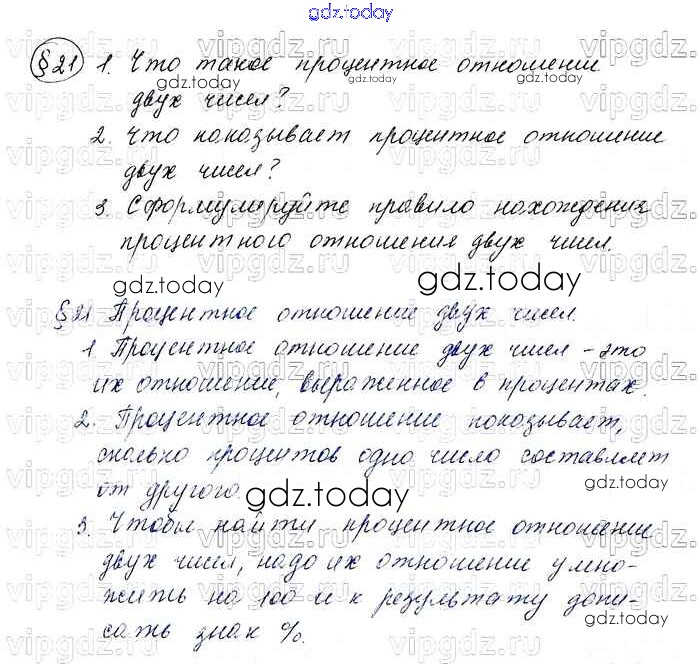 gdz.today
§21 1. Что такое процентное отношение
двух чисел?
2. Что показывает процентное отношение
двух чисел?
3. Сформулируйте правило нахождения
процентного отношения двух чисел.
gdz.today gdz.today
§21 Процентное отношение двух чисел.
1 Процентное отношение двух чисел - это
их отношение, выраженное в процентах.
2. Процентное отношение показывает,
сколько процентов одно число составляет
от другого.
gdz.today
3. Чтобы найти процентное отношение
двух чисел, надо их отношение умно-
жить на 100 и к результату допи-
сать знак %.